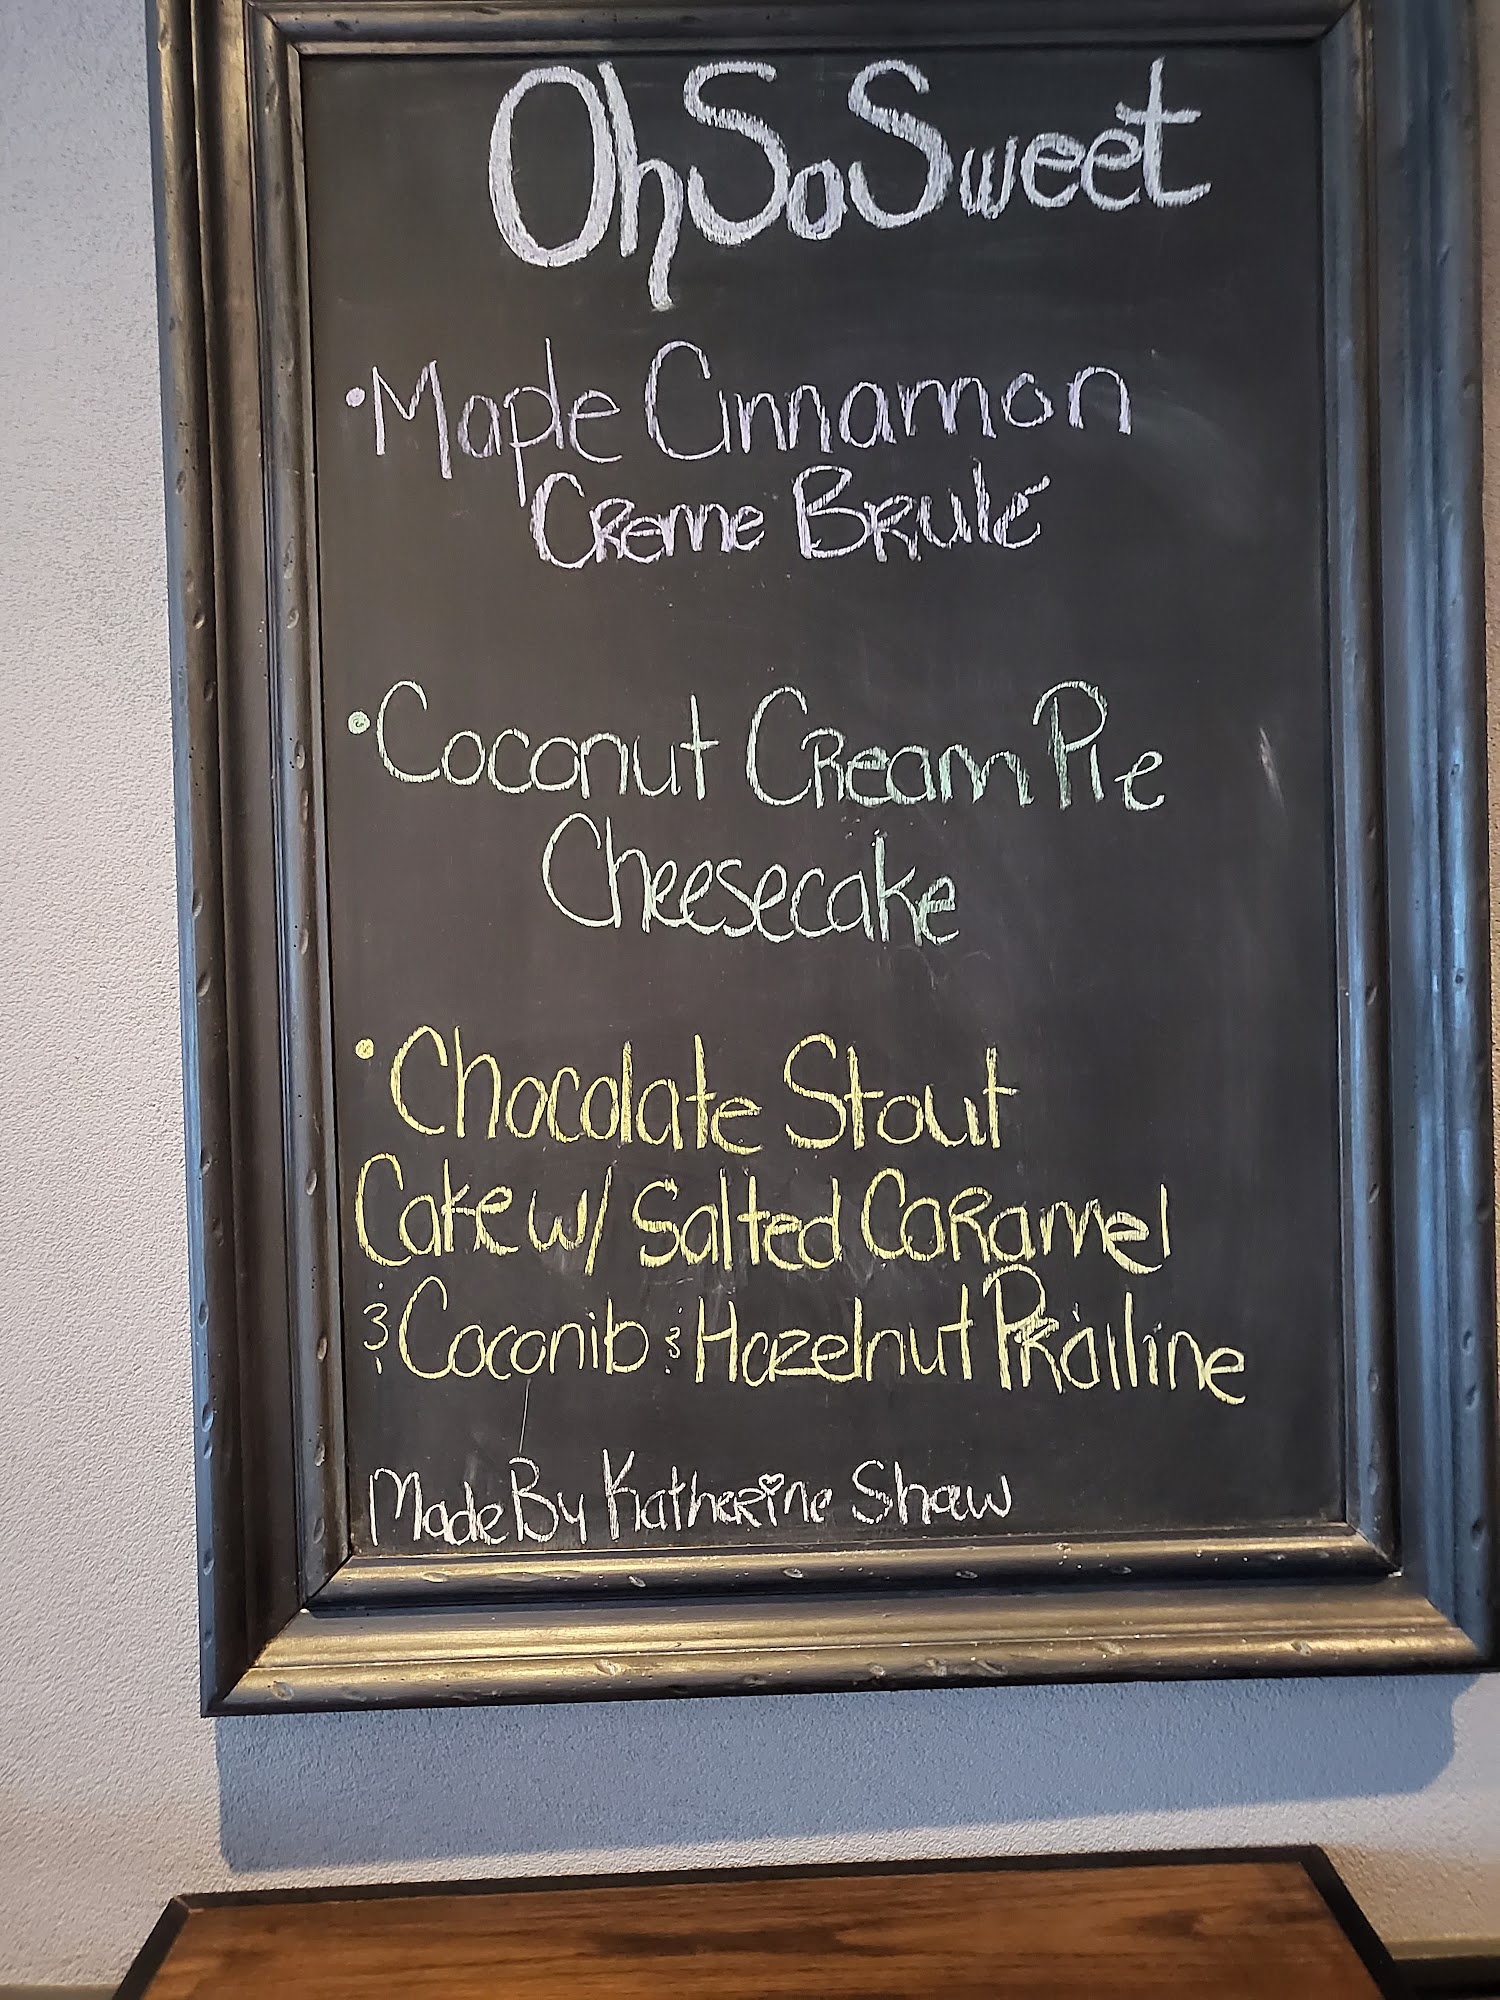 Oh So Sweet
•Maple Cinnamon
Creme Brulé
•Coconut Cream Pie
Cheesecake
•Chocolate Stout
Cake w/ Salted Caramel
& Coconib & Hazelnut Prailine
Made By Katherine Shaw